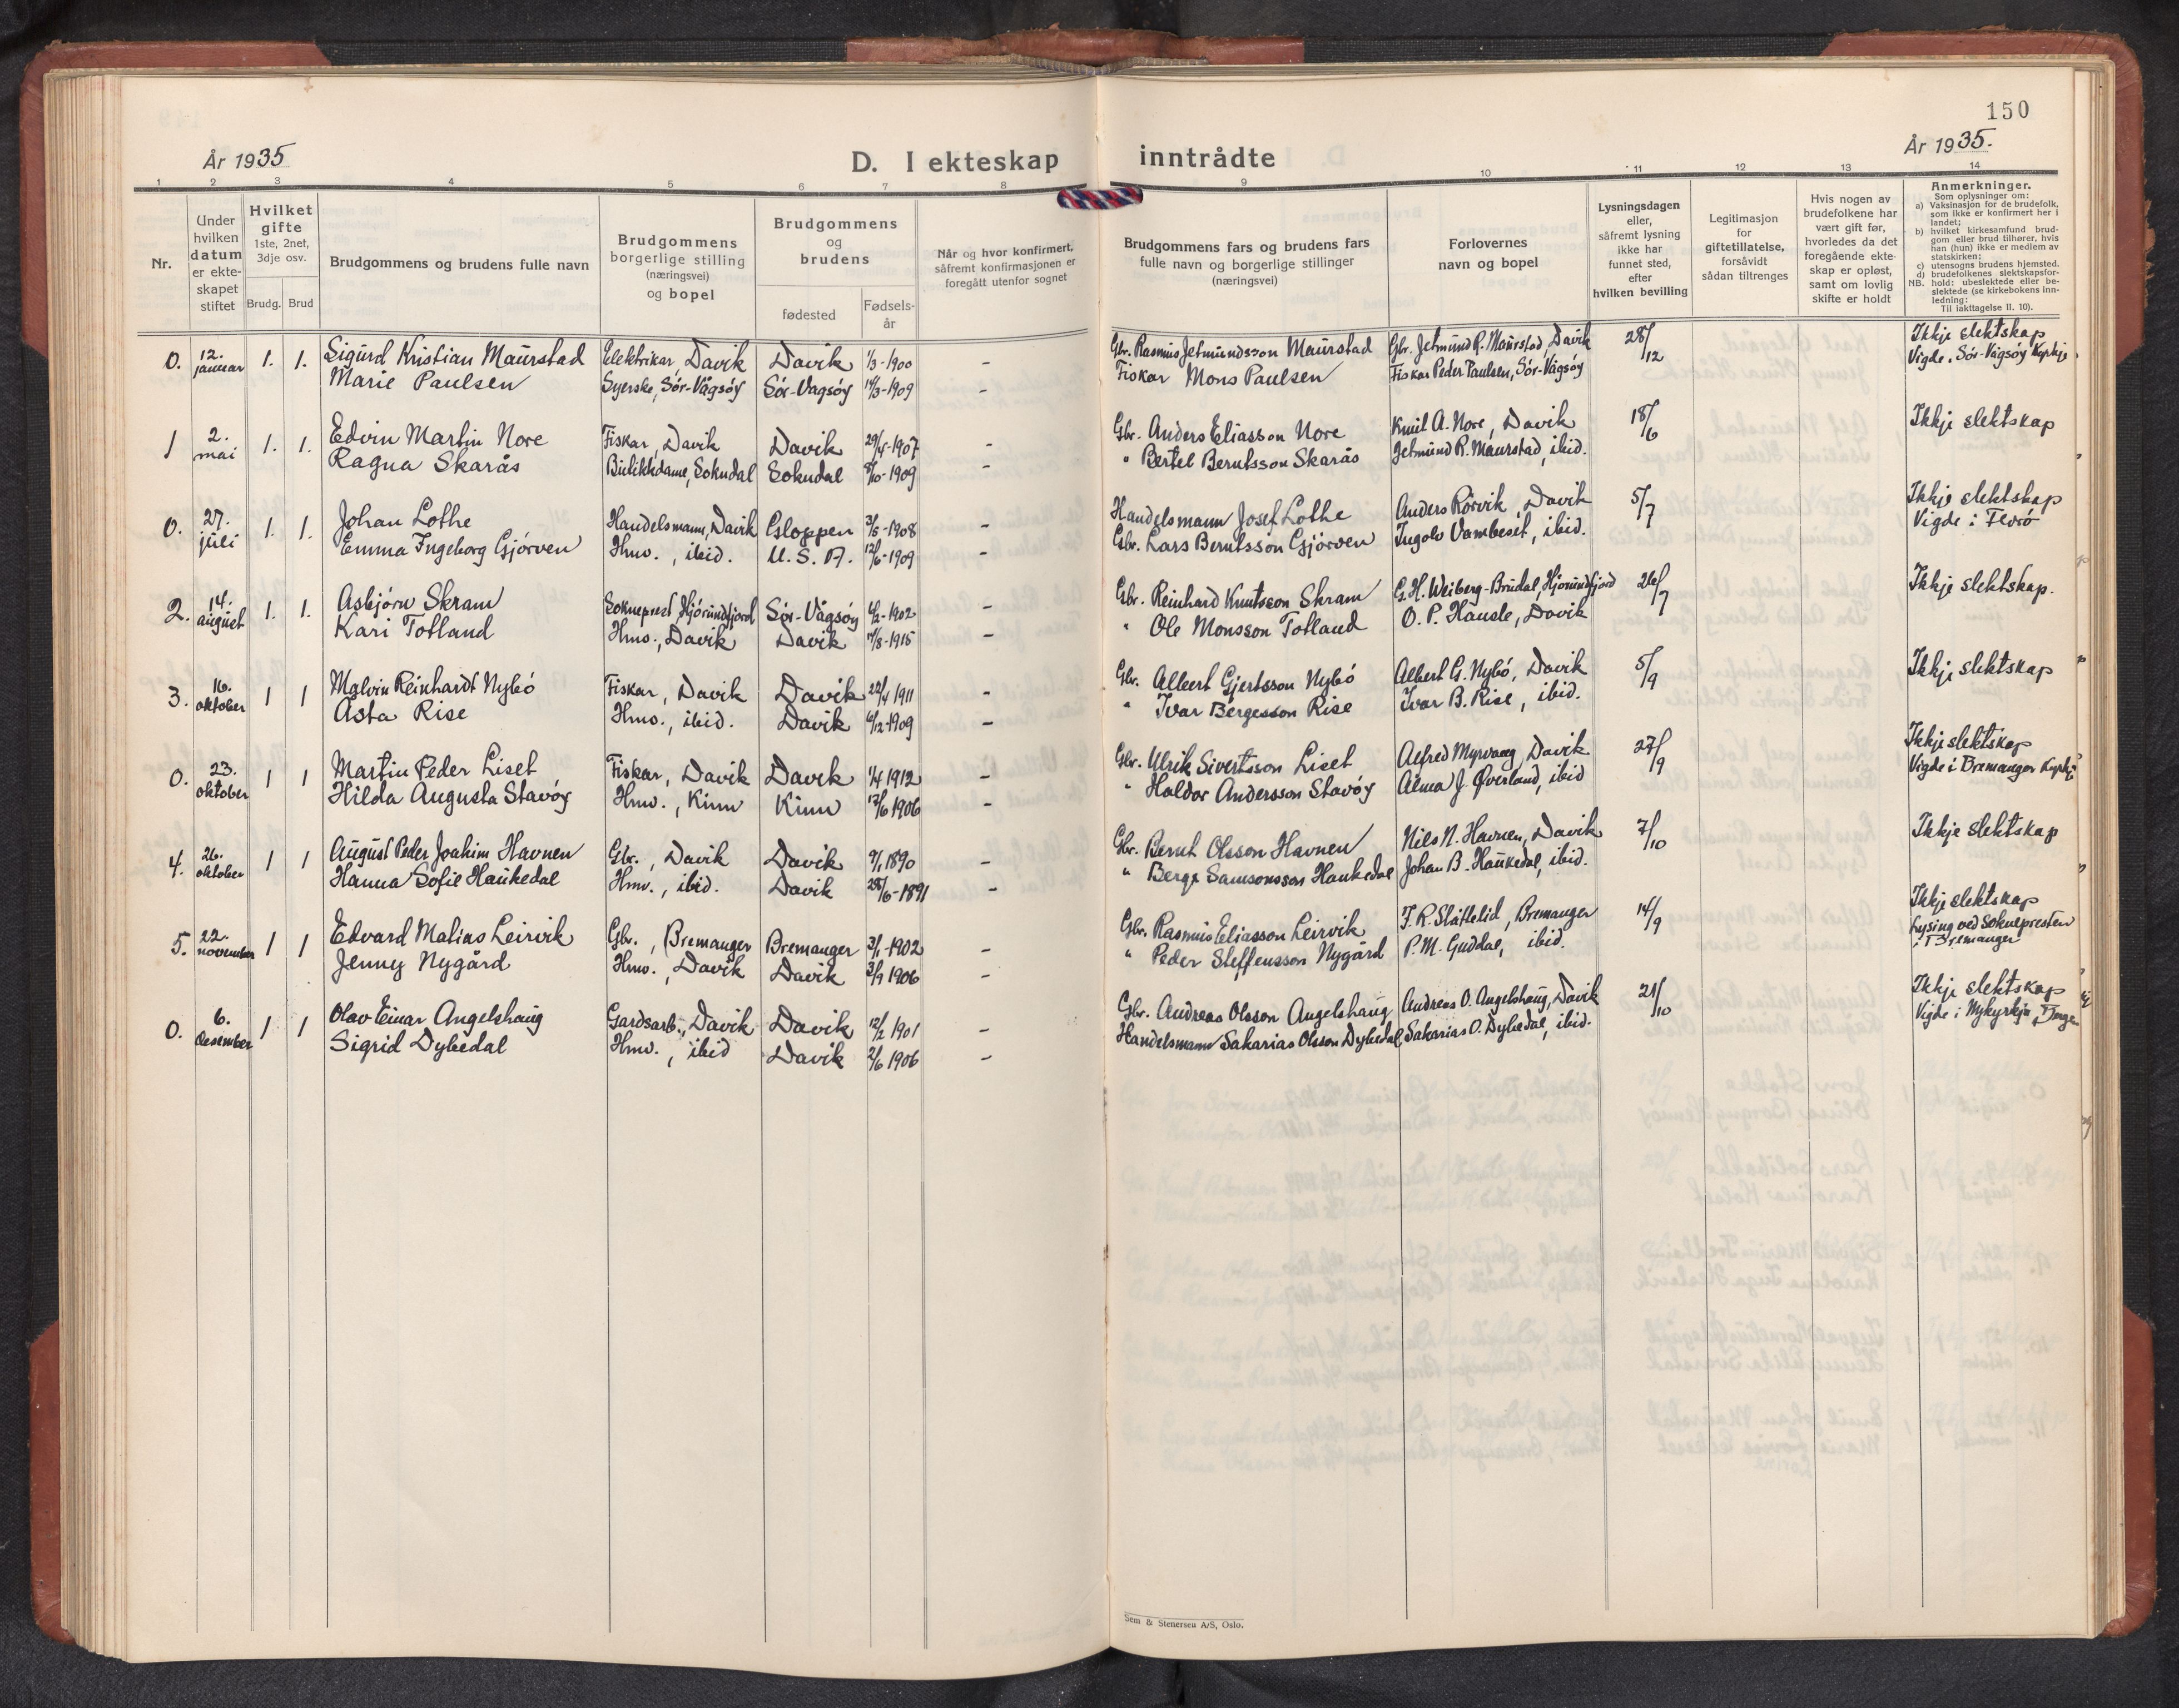 150
År 1935
D. I ekteskap inntrådte
År 1935.
1 2 3 4 5 6 7 8 9 10 11 12 13 14
Nr.
Under hvilken datum er ekteskapet stiftet
Hvilket gifte 1ste, 2net, 3dje osv.
Brudg. Brud
Brudgommens og brudens fulle navn
Brudgommens borgerlige stilling (næringsvei) og bopel
Brudgommens og brudens
fødested
Fødsels-år
Når og hvor konfirmert, såfremt konfirmasjonen er foregått utenfor sognet
Brudgommens fars og brudens fars fulle navn og borgerlige stillinger (næringsvei)
Forlovernes navn og bopel
Lysningsdagen eller, såfremt lysning ikke har funnet sted, efter hvilken bevilling
Legitimasjon for giftetillatelse, forsåvidt sådan tiltrenges
Hvis nogen av brudefolkene har vært gift før, hvorledes da det foregående ekteskap er opløst, samt om lovlig skifte er holdt
Anmerkninger.
Som oplysninger om:
a) Vaksinasjon for de brudefolk, som ikke er konfirmert her i landet;
b) hvilket kirkesamfund brudgom eller brud tilhører, hvis han (hun) ikke er medlem av statskirken;
c) utensogns brudens hjemsted.
d) brudefolkenes slektskapsforhold: ubeslektede eller beslektede (se kirkebokens innledning:
NB. Til iakttagelse II. 10).
0. 12. januar 1. 1. Sigurd Kristian Maurstad Elektrikar, Davik Davik 1/3-1900 - Gbr. Rasmus Jetmundsson Maurstad Gbr. Jetmund R. Maurstad Davik 28/12 Ikkje slektskap
Marie Paulsen Syerske, Sør-Vågsøy Sør-Vågsøy 14/3-1909 - Fiskar Mons Paulsen Fiskar Peder Paulsen, Sør-Vågsøy Vigde i Sør-Vågsøy Kyrkje
1 2. mai 1. 1. Edvin Martin Nore Fiskar, Davik Davik 29/4-1907 - Gbr. Anders Eliasson Nore Knut A. Nore, Davik 18/6 Ikkje slektskap
Ragna Skarås Butikkdame, Sokndal Sokndal 8/10-1909 - " Bertel Berntsson Skarås Jetmund R. Maurstad, ibid.
0. 27. juli 1. 1. Johan Lothe Handelsmann, Davik Gloppen 3/6-1908 - Handelsmann Josef Lothe Anders Rørvik, Davik 5/7 Ikkje slektskap
Emma Ingeborg Gjörven Hmv., ibid. U.S.A. 12/6-1909 - Gbr. Lars Berntsson Gjörven Ingolv Vambeset, ibid. Vigde i Florö
2. 14. august 1. 1. Asbjörn Skram Sokneprest, Hjörundfjord Sør-Vågsøy 4/2-1902 - Gbr. Reinhard Knutsson Skram G.H. Weiberg-Brudal, Hjørundfjord 26/7 Ikkje slektskap.
Kari Totland Hmv., Davik Davik 14/8-1915 - " Ole Monsson Totland O. P. Hausle, Davik
3. 16. oktober 1 1 Malvin Reinhardt Nybö Fiskar, Davik Davik 22/4 1911 - Gbr. Albert Gjertsson Nybö Albert G. Nybö, Davik 5/9 Ikkje slektskap
Asta Rise Hmv., ibid. Davik 6/12-1909 - " Ivar Bergesson Rise Ivar B. Rise, ibid.
0. 23. oktober 1 1 Martin Peder Liset Fiskar, Davik Davik 1/4 1912 - Gbr. Ulrik Sivertsson Liset Alfred Myrvang, Davik 27/9 Ikkje slektskap
Hilda Augusta Stavöy Hmv., Kinn Kinn 17/6 1906 - " Haldor Andersson Stavöy Alma J. Øverland, ibid Vigde i Bremanger Kyrkje
4. 26. oktober 1 1 August Peder Joakim Havnen Gbr., Davik Davik 9/1 1890 - Gbr. Bernt Olsson Havnen Nils N. Havnen, Davik 7/10 Ikkje slektskap
Hanna Sofie Haukedal Hmv., ibid. Davik 28/6-1891 - " Berge Samsonsson Haukedal Johan B. Haukedal, ibid.
5. 22. november 1 1 Edvard Matias Leirvik Gbr., Bremanger Bremanger 3/1-1902 - Gbr. Rasmus Eliasson Leirvik F. R. Slåttelid, Bremanger 14/9 Ikkje slektskap
Jenny Nygård Hmv., Davik Davik 3/9 1906 - " Peder Steffensson Nygård P. M. Guddal, ibid. Lysing ved Soknepresten i Bremanger
0. 6. desember 1 1 Olav Einar Angelshaug Gardsarb., Davik Davik 12/2 1901 - Gbr. Andreas Olsson Angelshaug Andreas O. Angelshaug, Davik 21/10 Ikkje slektskap
Sigrid Dybedal Hmv., ibid Davik 2/6 1906 - Handelsmann Sakarias Olsson Dybedal Sakarias O. Dybedal, ibid. Vigde i Nykyrkja,
Sem & Stenersen A/S, Oslo.